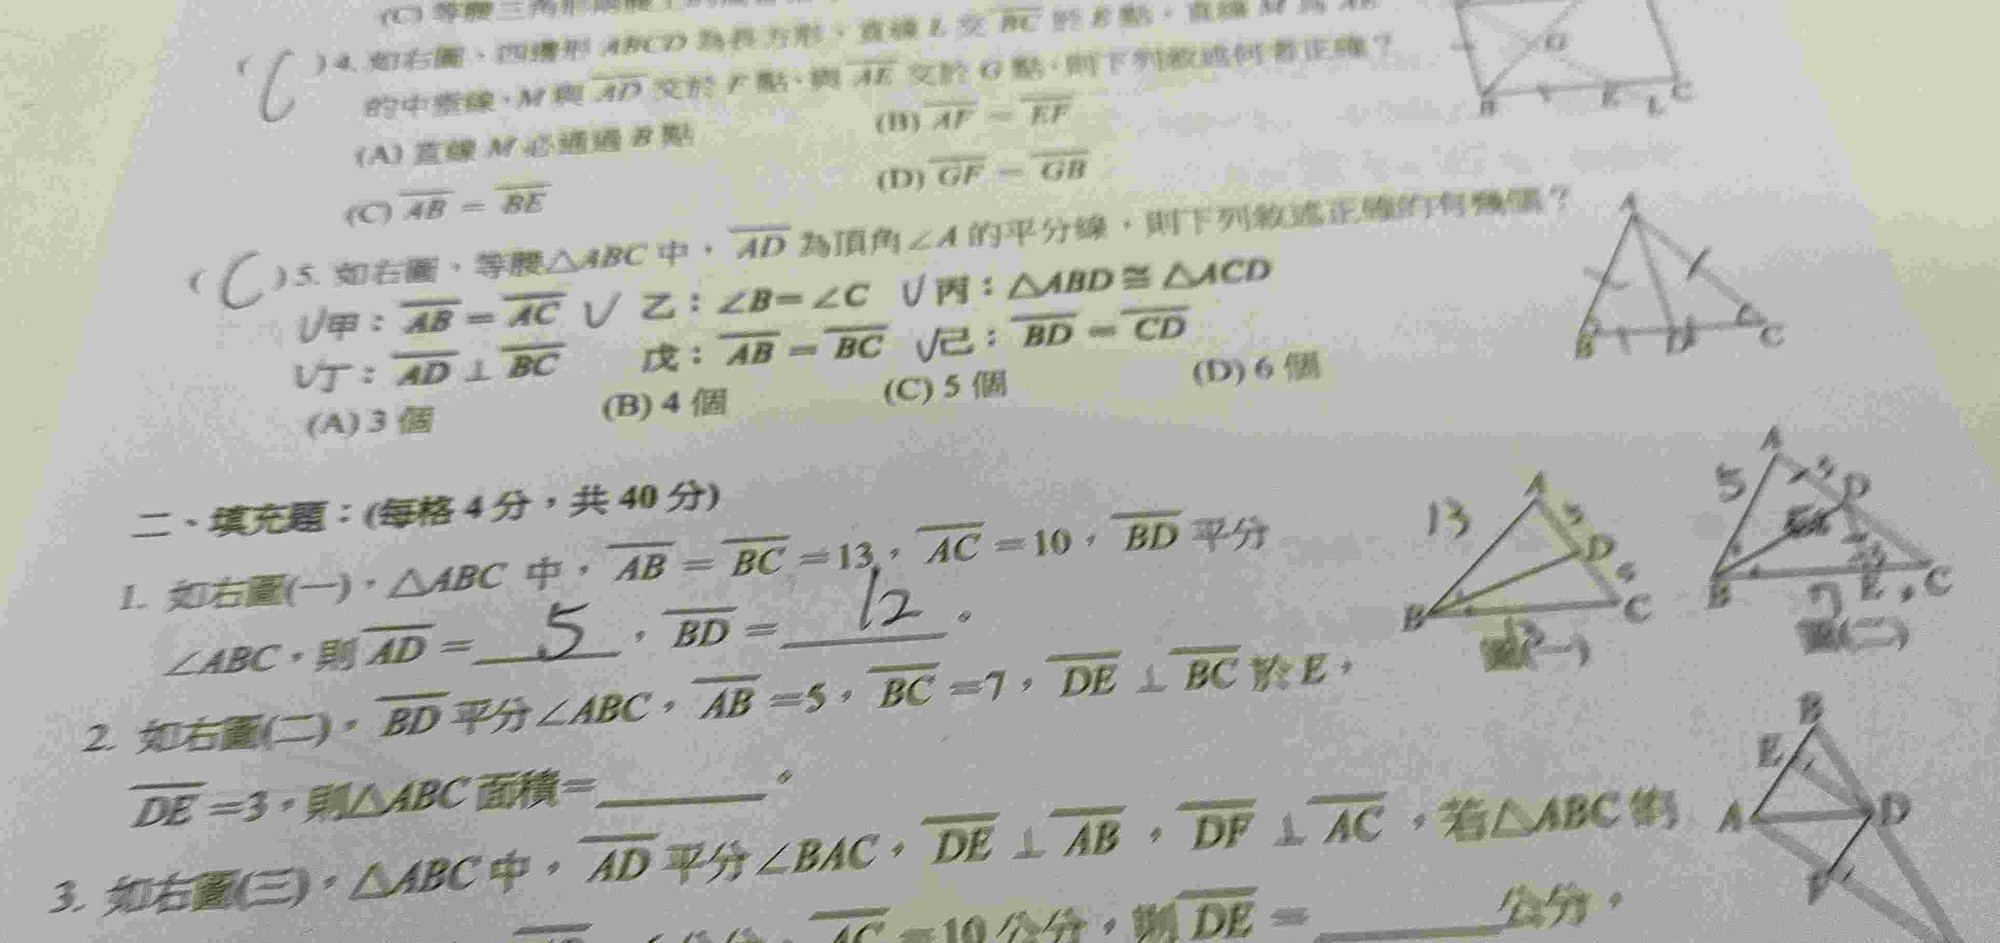 (C) 等腰三角形
( C )4. 如右圖、四邊形 ABCD 為長方形、直線 L 交 BC 於 E 點,直線 M 為 AE
的中垂線、M 與 AD 交於 F 點、與 AE 交於 G 點,則下列敘述何者正確?
(A) 直線 M 必通過 B 點 (B) AF = EF
(C) AB = BE (D) GF = GB
( C )5. 如右圖、等腰△ABC 中, AD 為頂角∠A 的平分線,則下列敘述正確的有幾個?
√甲:AB = AC √ 乙:∠B=∠C √ 丙:△ABD≅△ACD
√丁:AD⊥BC 戊:AB = BC √己:BD = CD
(A) 3 個 (B) 4 個 (C) 5 個 (D) 6 個
二、填充題:(每格 4 分,共 40 分)
1. 如右圖(一),△ABC 中,AB = BC =13,AC =10,BD 平分
∠ABC,則AD = 5 ,BD = 12 。
2. 如右圖(二),BD 平分∠ABC,AB =5,BC =7,DE⊥BC 於 E,
DE =3,則△ABC 面積=______。
3. 如右圖(三),△ABC 中,AD 平分∠BAC,DE⊥AB,DF⊥AC,若△ABC 的
AC =10 公分,則DE =______公分。
G
B
E
L
C
A
B
D
C
A
13
5
D
5
B
C
圖(一)
A
5
D
B
7
E
C
圖(二)
B
E
A
D
F